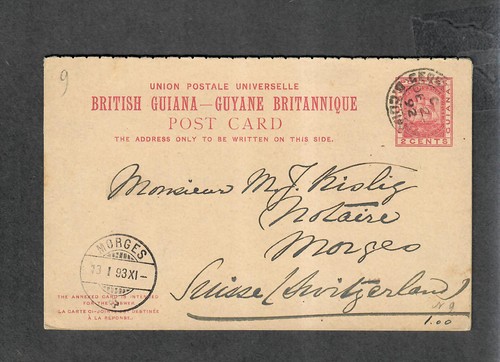 9
UNION POSTALE UNIVERSELLE
BRITISH GUIANA—GUYANE BRITANNIQUE
POST CARD
THE ADDRESS ONLY TO BE WRITTEN ON THIS SIDE.
GUIANA
2 CENTS
92
Monsieur M. J. Kislig
Notaire
Morges
Suisse (Switzerland)
MORGES
I 93 XI-
THE ANNEXED CARD IS INTENDED
FOR THE ANSWER.
LA CARTE CI-JOINTE EST DESTINÉE
À LA RÉPONSE.
1.00